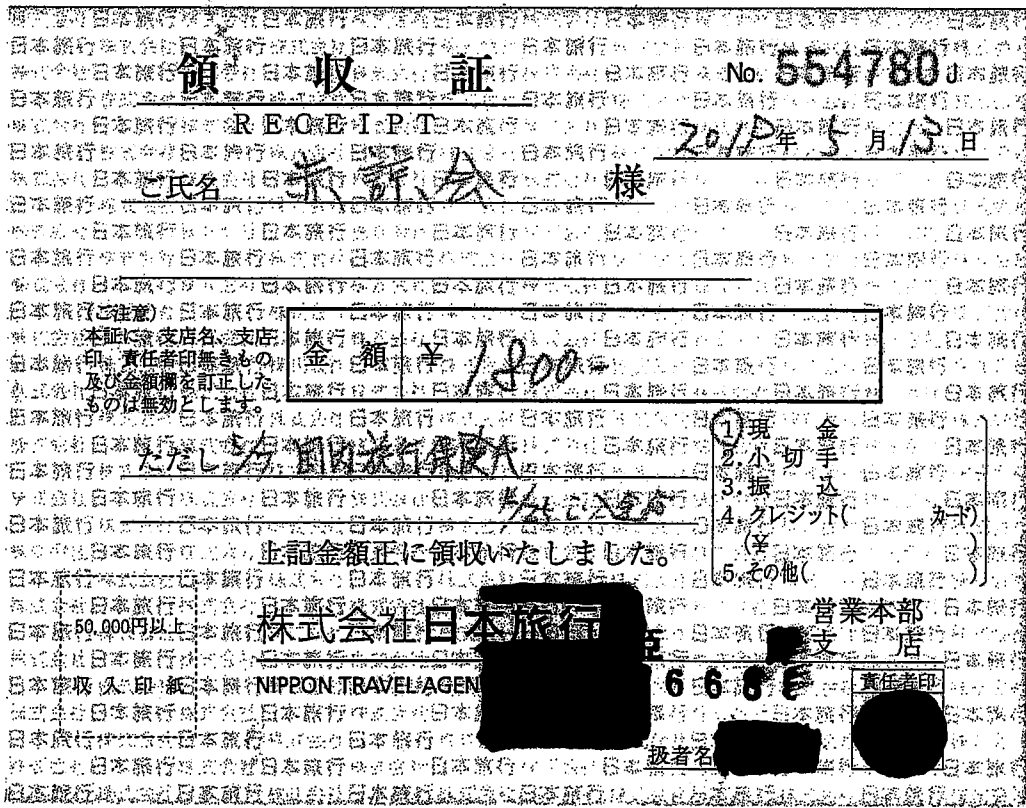 領収証
No. 554780J
RECEIPT
年 5月13日
ご氏名 様
(ご注意)
本証に、支店名、支店
印、責任者印無きもの
及び金額欄を訂正した
ものは無効とします。
金額 ¥ 1800-
ただし 国内旅行保険代
1.現金
2.小切手
3.振込
4.クレジット( カード)
(¥ )
5.その他( )
上記金額正に領収いたしました。
50,000円以上
収入印紙
株式会社日本旅行
営業本部
支店
NIPPON TRAVEL AGEN
責任者印
扱者名